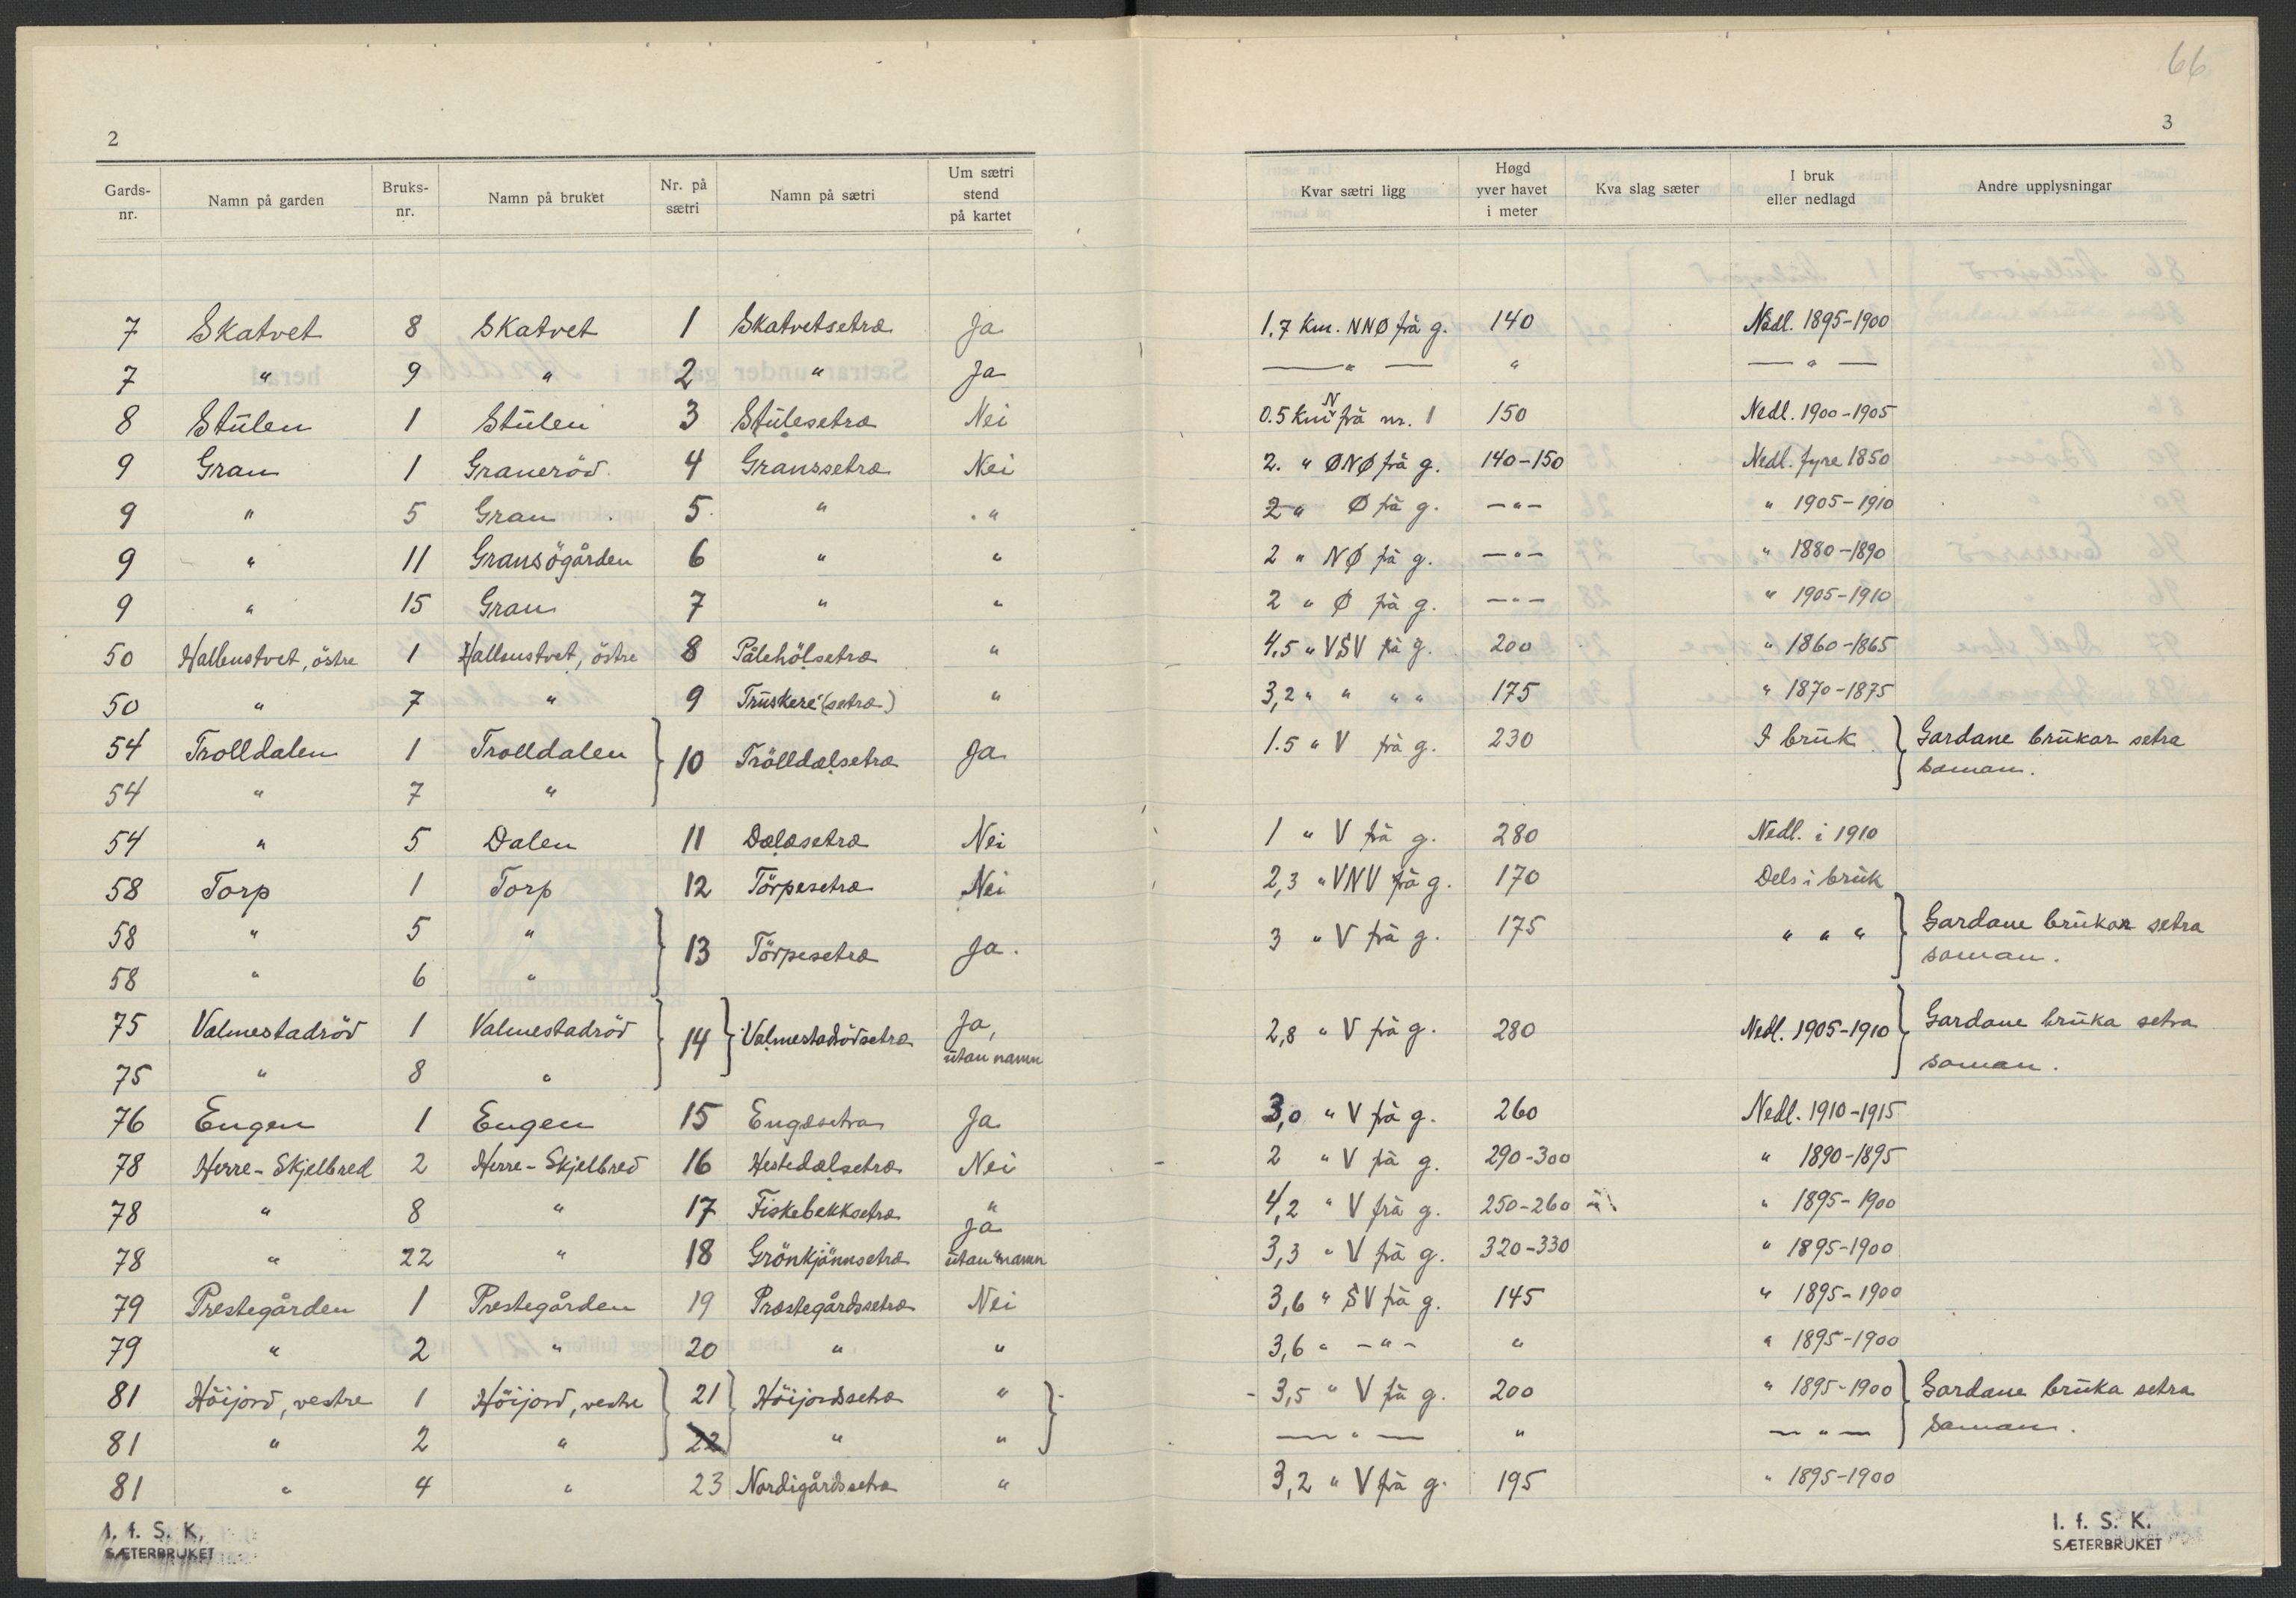 66
2
Gards-nr. Namn på garden Bruks-nr. Namn på bruket Nr. på sætri Namn på sætri Um sætri stend på kartet
7 Skatvet 8 Skatvet 1 Skatvetsetra Ja
7 " 9 " 2 " Ja
8 Stülen 1 Stülen 3 Stülesetra Nei
9 Gran 1 Graneröd 4 Granssetra Nei
9 " 5 Gran 5 " "
9 " 11 Gransögården 6 " "
9 " 15 Gran 7 " "
50 Hallenstvet, östre 1 Hallenstvet, östre 8 Pålehölsetra "
50 " 7 " 9 Trüskere (setra) "
54 Trolldalen 1 Trolldalen } 10 Trölldalsetra Ja
54 " 7 "
54 " 5 Dalen 11 Dalasetra Nei
58 Torp 1 Torp 12 Törpesetra Nei
58 " 5 " } 13 Törpesetra Ja.
58 " 6 "
75 Valmestadröd 1 Valmestadröd } 14 } Valmestadrödsetra Ja, ütan namn
75 " 8 "
76 Engen 1 Engen 15 Engasetra Ja
78 Herre-Skjelbred 2 Herre-Skjelbred 16 Hestedalsetra Nei
78 " 8 " 17 Fiskebekksetra "
78 " 22 " 18 Grönkjönnsetra Ja ütan namn
79 Prestegården 1 Prestegården 19 Prestegårdssetra Nei
79 " 2 " 20 " "
81 Höijord, vestre 1 Höijord, vestre } 21 } Höijordsetra " }
81 " 2 " 22 " "
81 " 4 " 23 Nordigårdssetra "
I. f. S. K.
SÆTERBRUKET
3
Kvar sætri ligg Høgd yver havet i meter Kva slag sæter I bruk eller nedlagd Andre upplysningar
1.7 Km. NNØ frå g. 140 Nedl. 1895-1900
— " — " — " —
0.5 Km N frå nr. 1 150 Nedl. 1900-1905
2. " ØNØ frå g. 140-150 Nedl. fyre 1850
2 " Ø frå g. — " — " 1905-1910
2 " NØ frå g. — " — " 1880-1890
2 " Ø frå g. — " — " 1905-1910
4.5 " VSV frå g. 200 " 1860-1865
3,2 " " " " 175 " 1870-1875
1.5 " V frå g. 230 I brük } Gardane brükar setra
saman.
1 " V frå g. 280 Nedl. i 1910
2,3 " VNV frå g. 170 Dels i brük
3 " V frå g. 175 " " " } Gardane brükar setra
saman.
2,8 " V frå g. 280 Nedl. 1905-1910 } Gardane brüka setra
saman.
3,0 " V frå g. 260 Nedl. 1910-1915
2 " V frå g. 290-300 " 1890-1895
4,2 " V frå g. 250-260 " 1895-1900
3,3 " V frå g. 320-330 " 1895-1900
3,6 " SV frå g. 145 " 1895-1900
3,6 " - " - " " 1895-1900
- 3,5 " V frå g. 200 " 1895-1900 } Gardane brüka setra
— " — " — " — saman.
3,2 " V frå g. 195 " 1895-1900
I. f. S. K.
SÆTERBRUKET